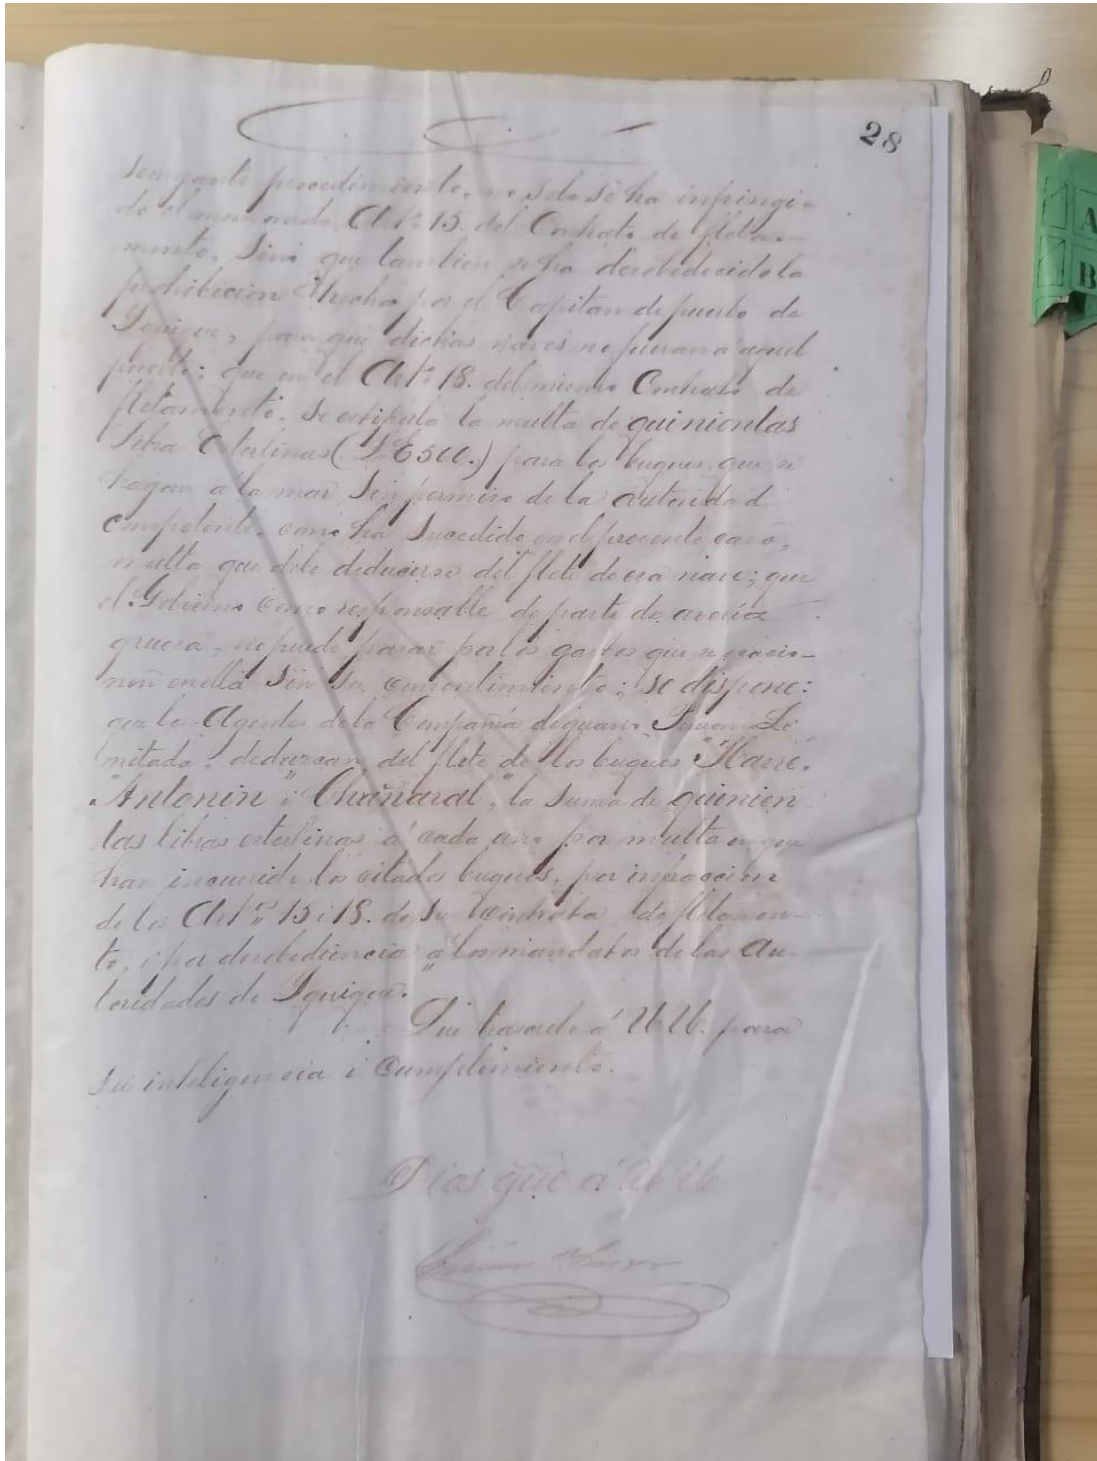 28
semejante procedimiento, no solo se ha infringi-
do el mencionado Art.º 15. del Contrato de fleta-
mento, sino que tambien se ha desobedecido la
prohibicion hecha por el Capitan de puerto de
Iquique, para que dichas naves no fueran á aquel
puerto: que en el Art.º 18. del mismo Contrato de
fletamento, se estipula la multa de quinientas
Libra Esterlinas (L.E 500.) para los buques que se
hagan a la mar sin permiso de la autoridad
competente, como ha sucedido en el presente caso,
multa que debe deducirse del flete de esa nave; que
el Gobierno como responsable de parte de avería
gruesa, no puede pasar por los gastos que se ocacio-
nen en ella sin su consentimiento; se dispone:
que los Agentes de la Compañía de guano Li
mitada, deduzcan del flete de los buques "Havre"
"Antonin" i "Chañaral," la suma de quinien
tas libras esterlinas á cada uno por multa en que
han incurrido los citados buques, por infraccion
de los Art.os 15 i 18. de su contrata de fletamen-
to, i por desobediencia á los mandatos de las Au-
toridades de Iquique.
Que trascribo á UU. para
su inteligencia i cumplimiento.
Dios gue á UU